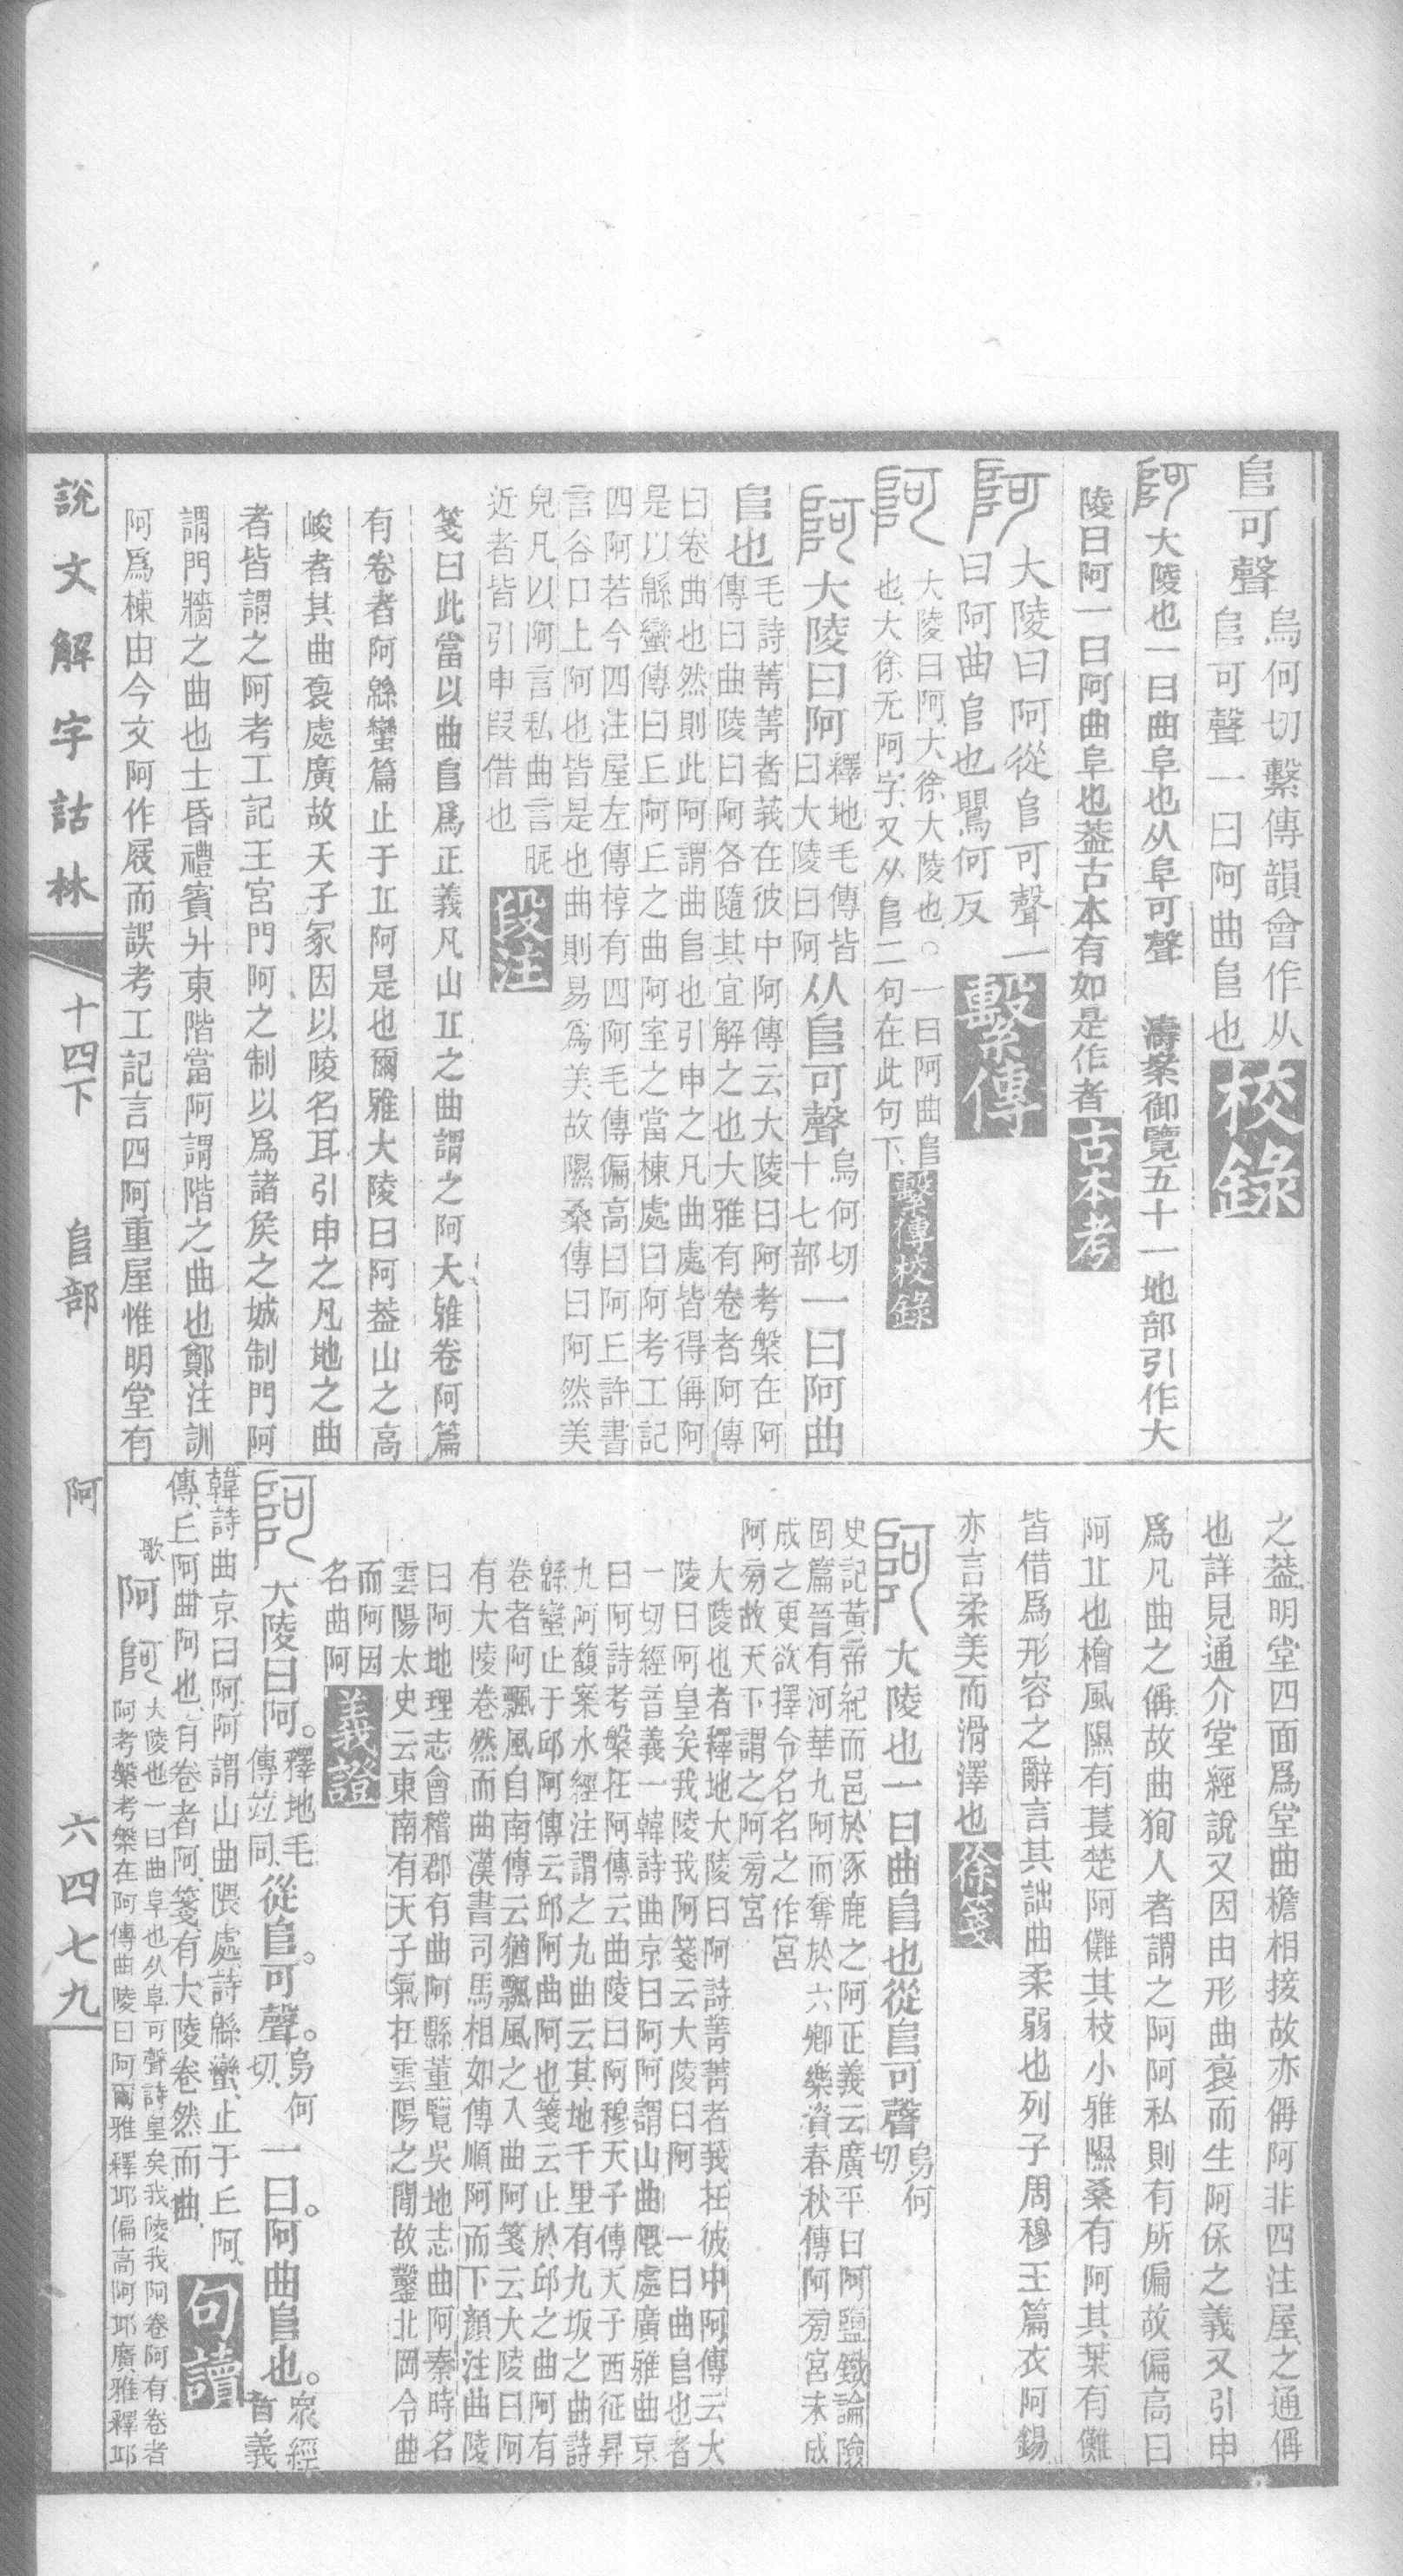 𨸏可聲烏何切繫傳韻會作从
𨸏可聲一曰阿曲𨸏也校錄
阿大陵也一曰曲阜也从阜可聲　濤案御覽五十一地部引作大
陵曰阿一曰阿曲阜也葢古本有如是作者古本考
阿大陵曰阿從𨸏可聲一
曰阿曲𨸏也鷖何反繫傳
阿大陵曰阿大徐大陵也○一曰阿曲𨸏
也大徐无阿字又从𨸏二句在此句下繫傳校錄
阿大陵曰阿釋地毛傳皆曰大陵曰阿从𨸏可聲烏何切十七部一曰阿曲
𨸏也毛詩菁菁者莪在彼中阿傳云大陵曰阿考槃在阿
傳曰曲陵曰阿各隨其宜解之也大雅有卷者阿傳
曰卷曲也然則此阿謂曲𨸏也引申之凡曲處皆得偁阿
是以緜蠻傳曰丘阿丘之曲阿室之當棟處曰阿考工記
四阿若今四注屋左傳椁有四阿毛傳偏高曰阿丘許書
言谷口上阿也皆是也曲則易爲美故隰桑傳曰阿然美
皃凡以阿言私曲言昵
近者皆引申叚借也段注
箋曰此當以曲𨸏爲正義凡山丠之曲謂之阿大雅卷阿篇
有卷者阿緜蠻篇止于丠阿是也爾雅大陵曰阿葢山之高
峻者其曲袤處廣故天子冢因以陵名耳引申之凡地之曲
者皆謂之阿考工記王宮門阿之制以爲諸矦之城制門阿
謂門牆之曲也士昏禮賓升東階當阿謂階之曲也鄭注訓
阿爲棟由今文阿作㞡而誤考工記言四阿重屋惟明堂有
之葢明堂四面爲堂曲檐相接故亦偁阿非四注屋之通偁
也詳見通介堂經說又因由形曲袤而生阿保之義又引申
爲凡曲之偁故曲狥人者謂之阿阿私則有所偏故偏高曰
阿丠也檜風隰有萇楚阿儺其枝小雅隰桑有阿其葉有儺
皆借爲形容之辭言其詘曲柔弱也列子周穆王篇衣阿錫
亦言柔美而滑澤也徐箋
阿大陵也一曰曲𨸏也從𨸏可聲烏何切
史記黃帝紀而邑於涿鹿之阿正義云廣平曰阿鹽鐵論險
固篇晉有河華九阿而奪於六卿樂資春秋傳阿旁宮未成
成之更欲擇令名名之作宮
阿旁故天下謂之阿旁宮
大陵也者釋地大陵曰阿詩菁菁者莪在彼中阿傳云大
陵曰阿皇矣我陵我阿箋云大陵曰阿　一曰曲𨸏也者
一切經音義一韓詩曲京曰阿阿謂山曲隈處廣雅曲京
曰阿詩考槃在阿傳云曲陵曰阿穆天子傳天子西征昇
九阿馥案水經注謂之九曲云其地千里有九坂之曲詩
緜蠻止于邱阿傳云邱阿曲阿也箋云止於邱之曲阿有
卷者阿飄風自南傳云猶飄風之入曲阿箋云大陵曰阿
有大陵卷然而曲漢書司馬相如傳順阿而下顏注曲陵
曰阿地理志會稽郡有曲阿縣董覽吳地志曲阿秦時名
雲陽太史云東南有天子氣在雲陽之閒故鑿北岡令曲
而阿因
名曲阿義證
阿大陵曰阿。釋地毛傳竝同、從𨸏。可聲。烏何切、一曰。阿曲𨸏也。眾經音義
韓詩曲京曰阿、阿謂山曲隈處、詩緜蠻、止于丘阿、
傳、丘阿、曲阿也、有卷者阿、箋、有大陵卷然而曲、句讀
歌阿阿大陵也一曰曲阜也从阜可聲詩皇矣我陵我阿卷阿有卷者
阿考槃考槃在阿傳曲陵曰阿爾雅釋邱偏高阿邱廣雅釋邱
說文解字詁林
十四下
𨸏部
阿
六四七九